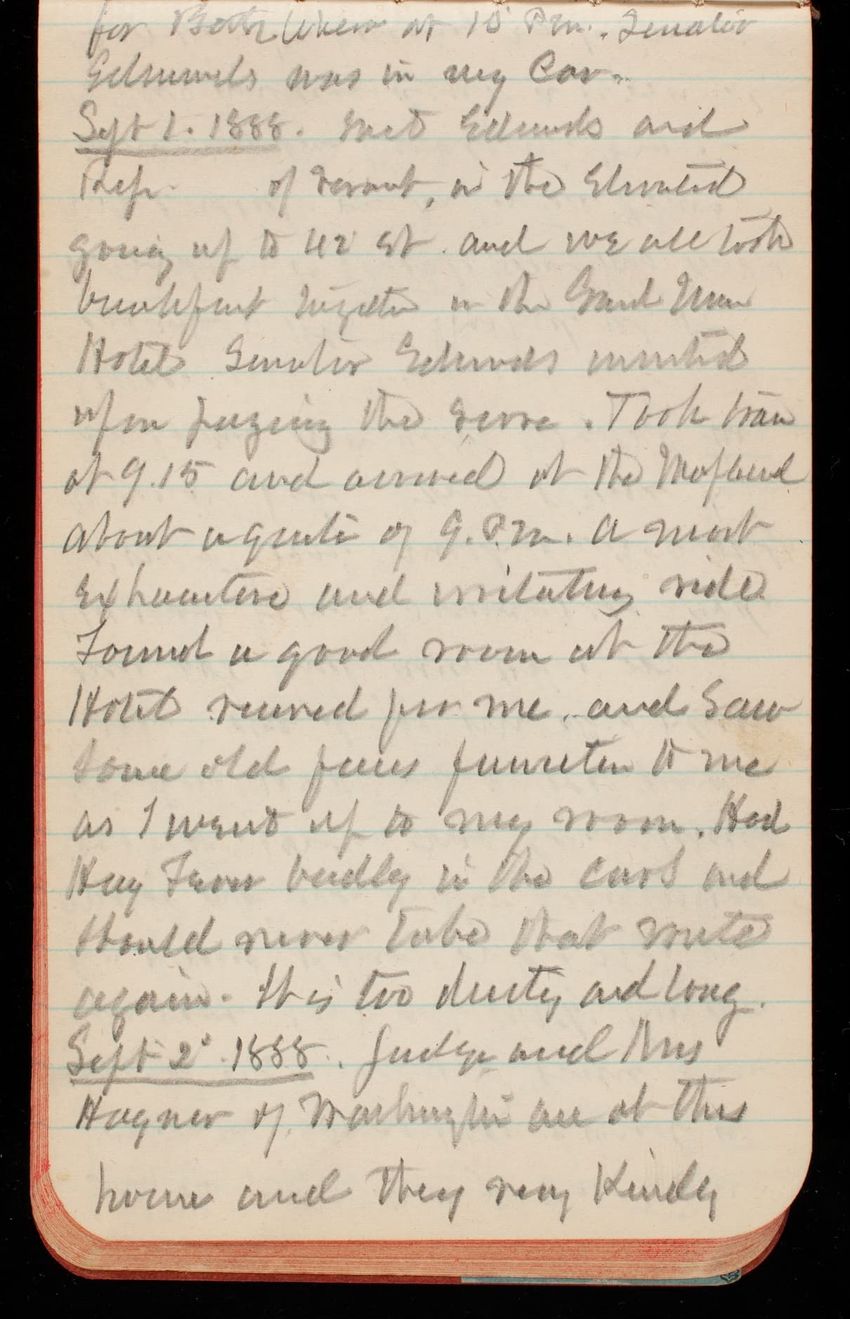 for Bethlehem at 10 P.m. Senator
Edmunds was in my Car.
Sept 1. 1888. Met Edmunds and
Rep. of Vermont, in the Elevated
going up to 42 St. and we all took
breakfast together in the Grand Union
Hotel Senator Edmunds insisted
upon paying the score. Took train
at 9.15 and arrived at the Maplewood
about a quarter of 9. P.m. A most
Exhaustive and irritating ride
Found a good room at the
Hotel reserved for me. and Saw
Some old faces familiar to me
as I went up to my room. Had
Hay Fever badly in the cars and
should never take that route
again. It is too dusty and long.
Sept 2d 1888. Judge and Mrs
Hagner of Washington are at this
house and they very Kindly